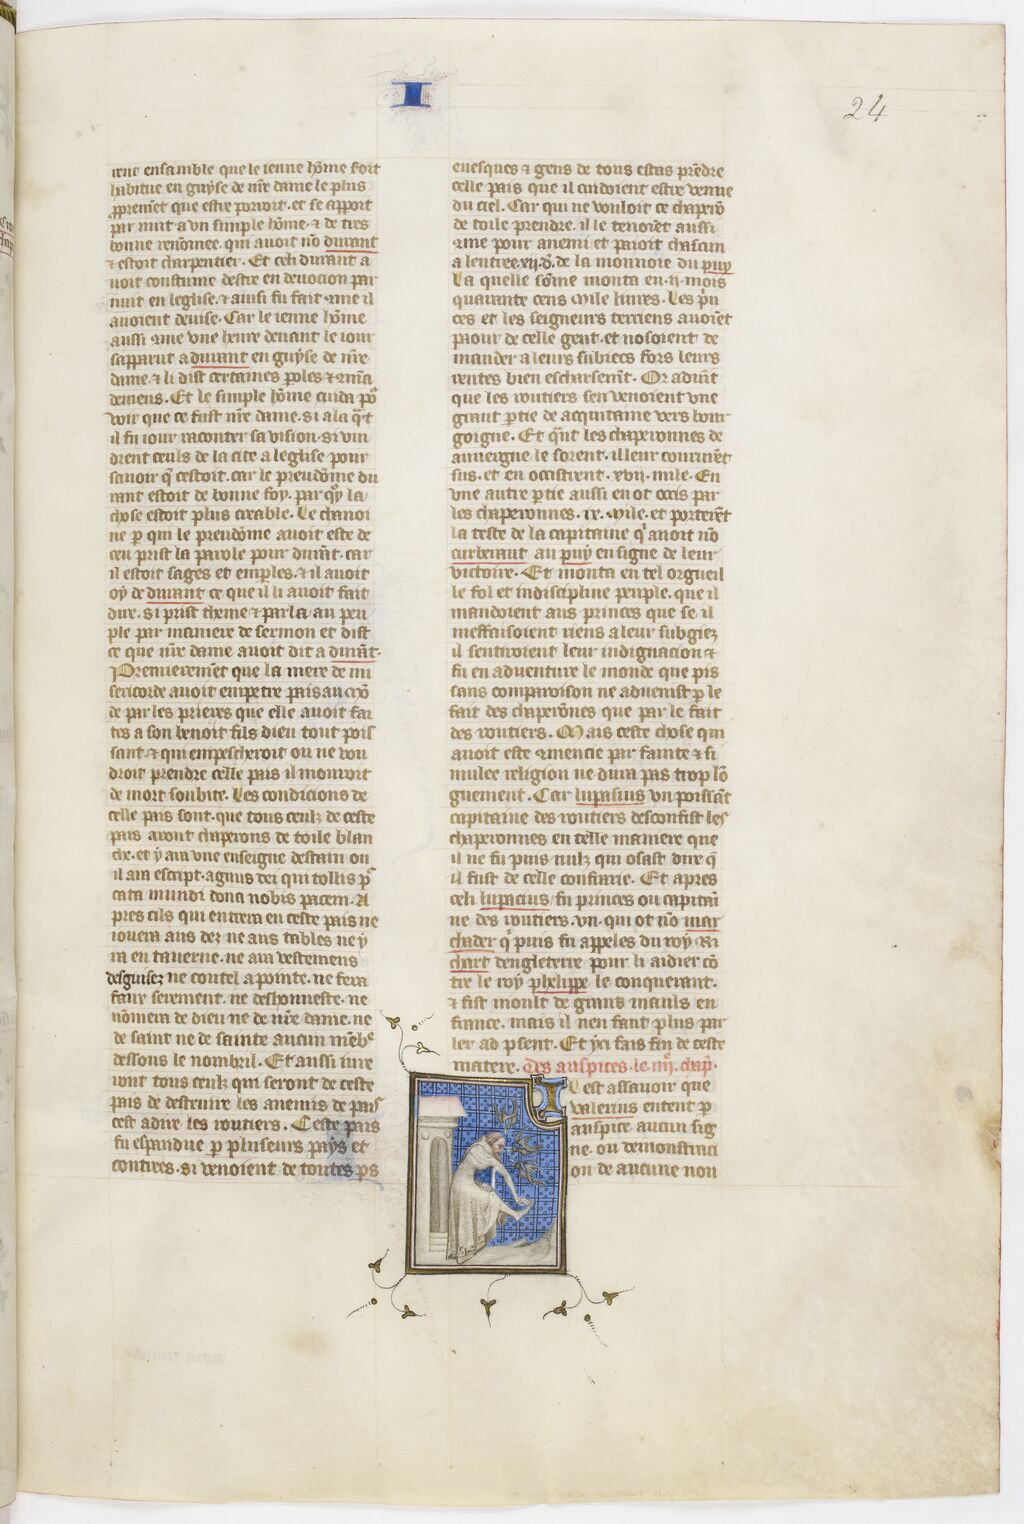 I
24
rent ensamble que le ienne hõme soit
habitue en guyse de nr̃e dame le plus
ꝓpremẽt que estre porroit. et se apport
par nuit a vn simple hõme. ⁊ de tres
bonne renõmee. qui auoit nõ durant
⁊ estoit charpentier. Et celi durant a
uoit coustume destre en deuocion par
nuit en leglise. ⁊ ainsi fu fait cõme il
auoient deuise. Car le ienne hõme
aussi cõme vne heure deuant le iour
sapparut a durant en guyse de nr̃e
dame. ⁊ li dist certaines ꝑoles ⁊ cõmã
demens. Et le simple hõme cuida po
voir que ce fust nr̃e dame. si a la q̃t
il fu iour raconter sa vision. si vin
drent ceuls de la cite a leglise pour
sauoir q̃ cestoit. car le preudõme du
rant estoit de bonne foy. par quy la
chose estoit plus creable. Le chanoi
ne ꝑ qui le preudõme auoit este de
ceu prist la parole pour durãt. car
il estoit sages et emples. ⁊ il auoit
oy de durant ce que il li auoit fait
dire. si prist theme ⁊ parla au peu
ple par maniere de sermon et dist
ce que nr̃e dame auoit dit a durãt.
Premieremẽt que la mere de mi
sericorde auoit empetre pais au mõ
de par les prieres que elle auoit fai
tes a son benoit fils dieu tout pois
sant. ⁊ qui empescheroit ou ne vou
droit prendre celle pais il mourroit
de mort soubite. Les condicions de
celle pais sont. que tous ceulz de ceste
pais aront chaperons de toile blan
che. et y ara vne enseigne destain ou
il ara escript. agnus dei qui tollis pͨ
cata mundi dona nobis pacem. A
pres cils qui entrera en ceste pais ne
iouera aus dez ne aus tables ne y
ra en tauerne. ne ara vestemens
desguisez ne coutel a pointe. ne fera
faux serement. ne deshonneste. ne
nõmera de dieu ne de nr̃e dame. ne
de saint ne de sainte aucun mẽbͤ
dessous le nombril. Et aussi iure
ront tous ceulz qui seront de ceste
pais de destruire les anemis de pais
cest adire les routiers. Ceste pais
fu espandue ꝑ plusieurs pays et
contrees. si venoient de toutes ꝑs
euesques ⁊ gens de tous estas prẽdre
celle pais que il cuidoient estre venue
du ciel. Car qui ne vouloit ce chaperõ
de toile prendre. il le tenoiẽt aussi
cõme pour anemi et paioit chascun
a lentree. xii. d̃. de la monnoie du puy
La quelle sõme monta en .ii. mois
quarante cens mile liures. Les prin
ces et les seigneurs terriens auoiẽt
paour de celle gent. et nosoient de
mander a leurs subiects fors leurs
rentes bien escharsemẽt. Or aduĩt
que les routiers sen venoient vne
grant ꝑtie de acquitaine vers bour
goigne. Et qãt les chaperonnes de
auuergne le sorent. il leur coururẽt
sus. et en occistrent .xvii. mile. En
vne autre ꝑtie aussi en ot occis par
les chaperonnes .ix. mile. et porterẽt
la teste de la capitaine q̃ auoit nõ
curberaut au puy en signe de leur
victoire. Et monta en tel orgueil
le fol et indiscipline peuple. que il
mandoient aus princes que se il
meffaisoient riens a leur subgiez
il sentiroient leur indignacion ⁊
fu en aduenture le monde que pis
sans comparoison ne aduenist ꝑ le
fait des chaperõnes que par le fait
des routiers. Mais ceste chose qui
auoit este cõmencie par fainte ⁊ si
mulee religion ne dura pas trop lõ
guement. Car lupasius vn poissãt
capitaine des routiers desconfist les
chaperonnes en telle maniere que
il ne fu puis nulz qui osast dire q̃
il fust de celle confrarie. Et apres
celi lupacius fu princes ou capitai
ne des routiers. vn. qui ot nõ mar
chader q̃ puis fu appeles du roy Ri
chart dengleterre pour li aidier cõ
tre le roy phelippe le conquerant.
⁊ fist moult de grans mauls en
france. mais il nen faut plus par
ler ad ꝑsent. Et yci fais fin de ceste
matere. Des auspices. le iiijͤ. chap̃.
Il est assauoir que
valerius entent ꝑ
auspice aucun sig
ne. ou demonstraci
on de aucune non